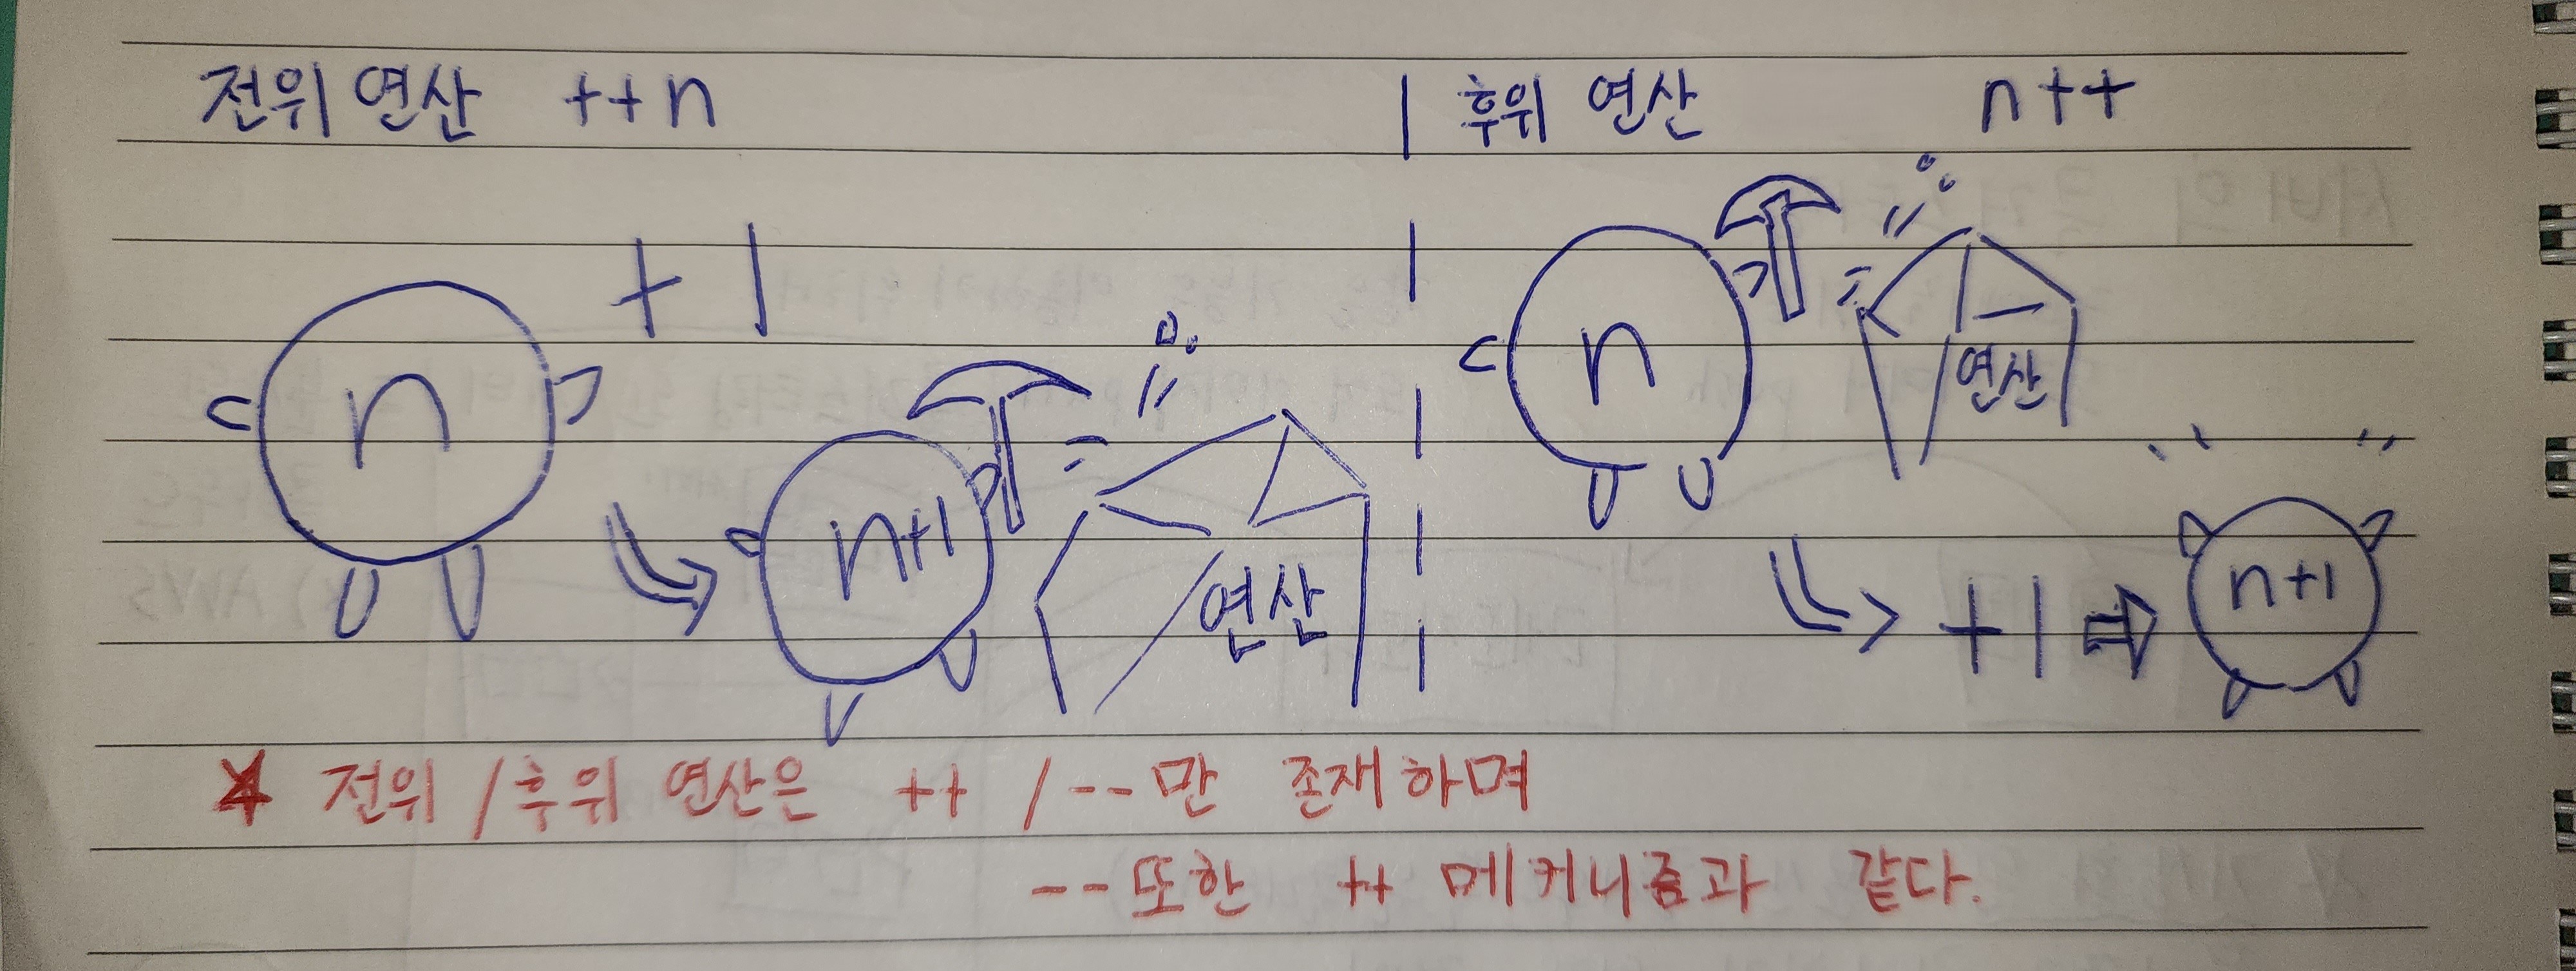 전위 연산 ++n
+1
n
n+1
연산
| 후위 연산 n++
n
연산
+1 ⇒ n+1
★ 전위 / 후위 연산은 ++ / -- 만 존재하며
-- 또한 ++ 메커니즘과 같다.